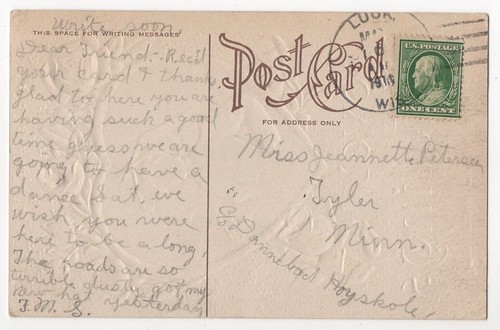 Write soon
THIS SPACE FOR WRITING MESSAGES
Dear Friend - Rec'd
your card & thanks
glad to here you are
having such a good
time guess we are
going to have a
dance Sat. eve
wish you were
here to be a long,
The roads are so
terrible dusty got my
new hat yesterday
F. M. S.
POST CARD
FOR ADDRESS ONLY
LUCK,
6
1910
WIS
U.S. POSTAGE
ONE CENT
Miss Jeannette Petersen
Tyler
Minn.
c/o Dannebod Hoyskole,